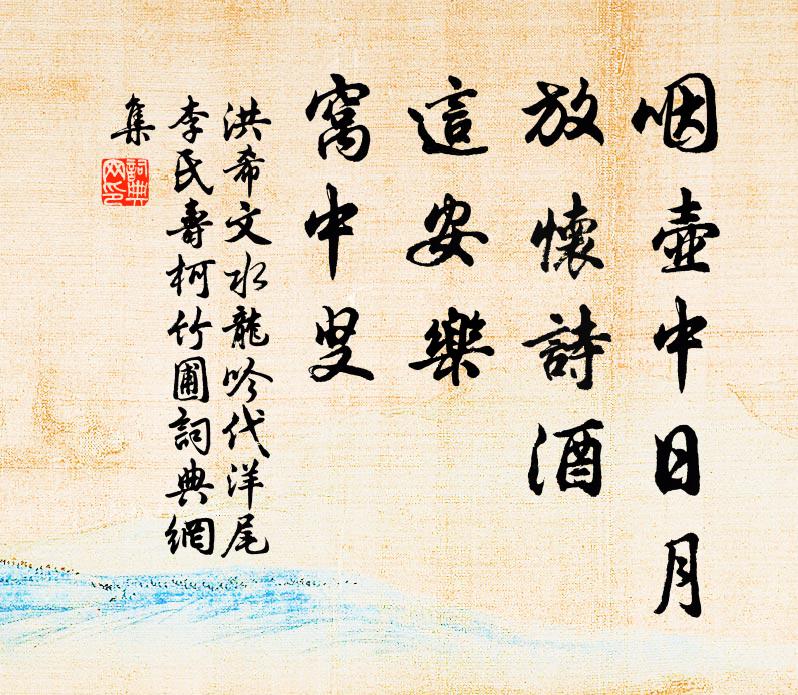 咽壺中日月
放懷詩酒
這安樂
窩中叟
洪希文水龍吟代洋尾
李民壽柯竹圃詞典網
集
詞典網印